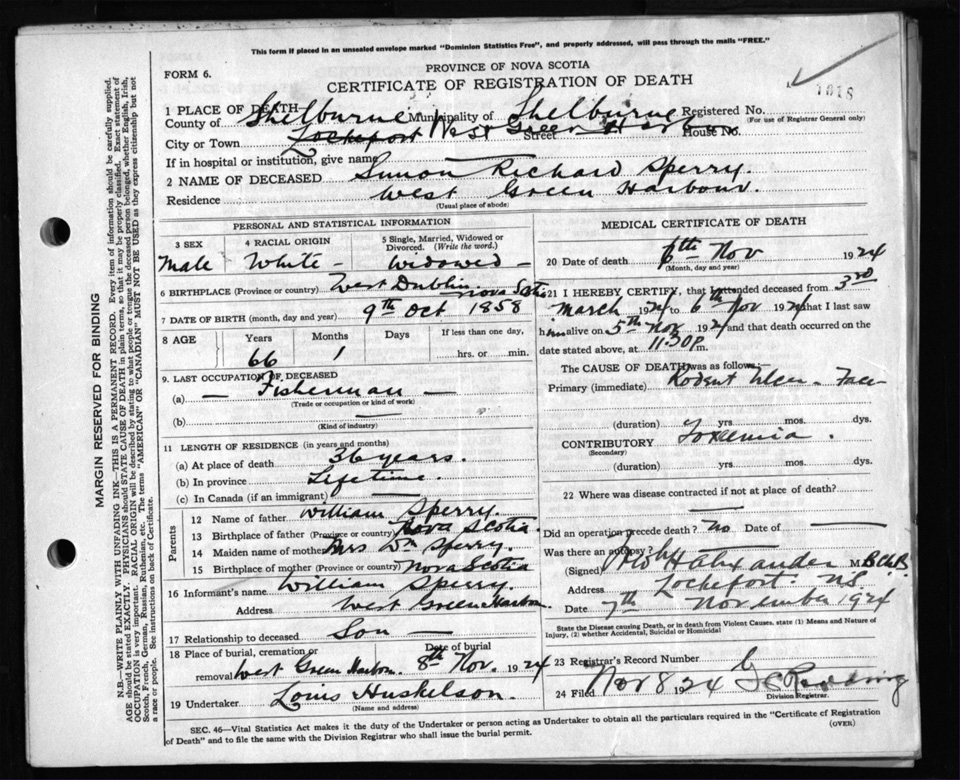 This form if placed in an unsealed envelope marked "Dominion Statistics Free", and properly addressed, will pass through the mails "FREE."
PROVINCE OF NOVA SCOTIA
FORM 6.
CERTIFICATE OF REGISTRATION OF DEATH
1018
1 PLACE OF DEATH
County of Shelburne Municipality of Shelburne Registered No.
(For use of Registrar General only)
City or Town Lockeport West Green Harb Street House No.
If in hospital or institution, give name
2 NAME OF DECEASED Simon Richard Sperry.
Residence West Green Harbour.
(Usual place of abode)
PERSONAL AND STATISTICAL INFORMATION
3 SEX 4 RACIAL ORIGIN 5 Single, Married, Widowed or Divorced. (Write the word.)
Male White - Widowed -
6 BIRTHPLACE (Province or country) West Dublin Nova Scotia
7 DATE OF BIRTH (month, day and year) 9th Oct 1858
8 AGE Years Months Days If less than one day,
66 1 hrs. or min.
9. LAST OCCUPATION OF DECEASED
(a) - Fisherman -
(Trade or occupation or kind of work)
(b)
(Kind of industry)
11 LENGTH OF RESIDENCE (in years and months)
(a) At place of death 36 years.
(b) In province Lifetime.
(c) In Canada (if an immigrant)
Parents
12 Name of father William Sperry.
13 Birthplace of father (Province or country) Nova Scotia.
14 Maiden name of mother Mrs Wm Sperry.
15 Birthplace of mother (Province or country) Nova Scotia
16 Informant's name William Sperry.
Address West Green Harbour
17 Relationship to deceased Son
18 Place of burial, cremation or removal Date of burial
West Green Harbour. 8th Nov. 1924
19 Undertaker Louis Huskelson.
(Name and address)
MEDICAL CERTIFICATE OF DEATH
20 Date of death 6th Nov 1924
(Month, day and year)
21 I HEREBY CERTIFY, that I attended deceased from 3rd
March 1924 to 6th Nov 1924 that I last saw
him alive on 5th Nov 1924 and that death occurred on the
date stated above, at 11.30 P.m.
The CAUSE OF DEATH was as follows:
Primary (immediate) Rodent Ulcer - Face
(duration) yrs. mos. dys.
CONTRIBUTORY Toxaemia.
(Secondary)
(duration) yrs. mos. dys.
22 Where was disease contracted if not at place of death?
Did an operation precede death? No Date of
Was there an autopsy?
(Signed) Alexander M.B.Ch.B.
Address Lockeport NS
Date 7th November 1924
State the Disease causing Death, or in death from Violent Causes, state (1) Means and Nature of Injury, (2) whether Accidental, Suicidal or Homicidal
23 Registrar's Record Number
24 Filed Nov 8 1924
Division Registrar.
SEC. 46—Vital Statistics Act makes it the duty of the Undertaker or person acting as Undertaker to obtain all the particulars required in the "Certificate of Registration of Death" and to file the same with the Division Registrar who shall issue the burial permit.
(OVER)
MARGIN RESERVED FOR BINDING
N.B.—WRITE PLAINLY WITH UNFADING INK—THIS IS A PERMANENT RECORD. Every item of information should be carefully supplied.
AGE should be stated EXACTLY. PHYSICIANS should STATE CAUSE OF DEATH in plain terms, so that it may be properly classified. Exact statement of
OCCUPATION is very important. RACIAL ORIGIN will be described by stating to what people or tongue the deceased person belonged, whether English, Irish,
Scotch, French, German, Russian, Ruthenian, etc. The terms "AMERICAN" OR "CANADIAN" MUST NOT BE USED as they express citizenship but not
a race or people. See instructions on back of Certificate.